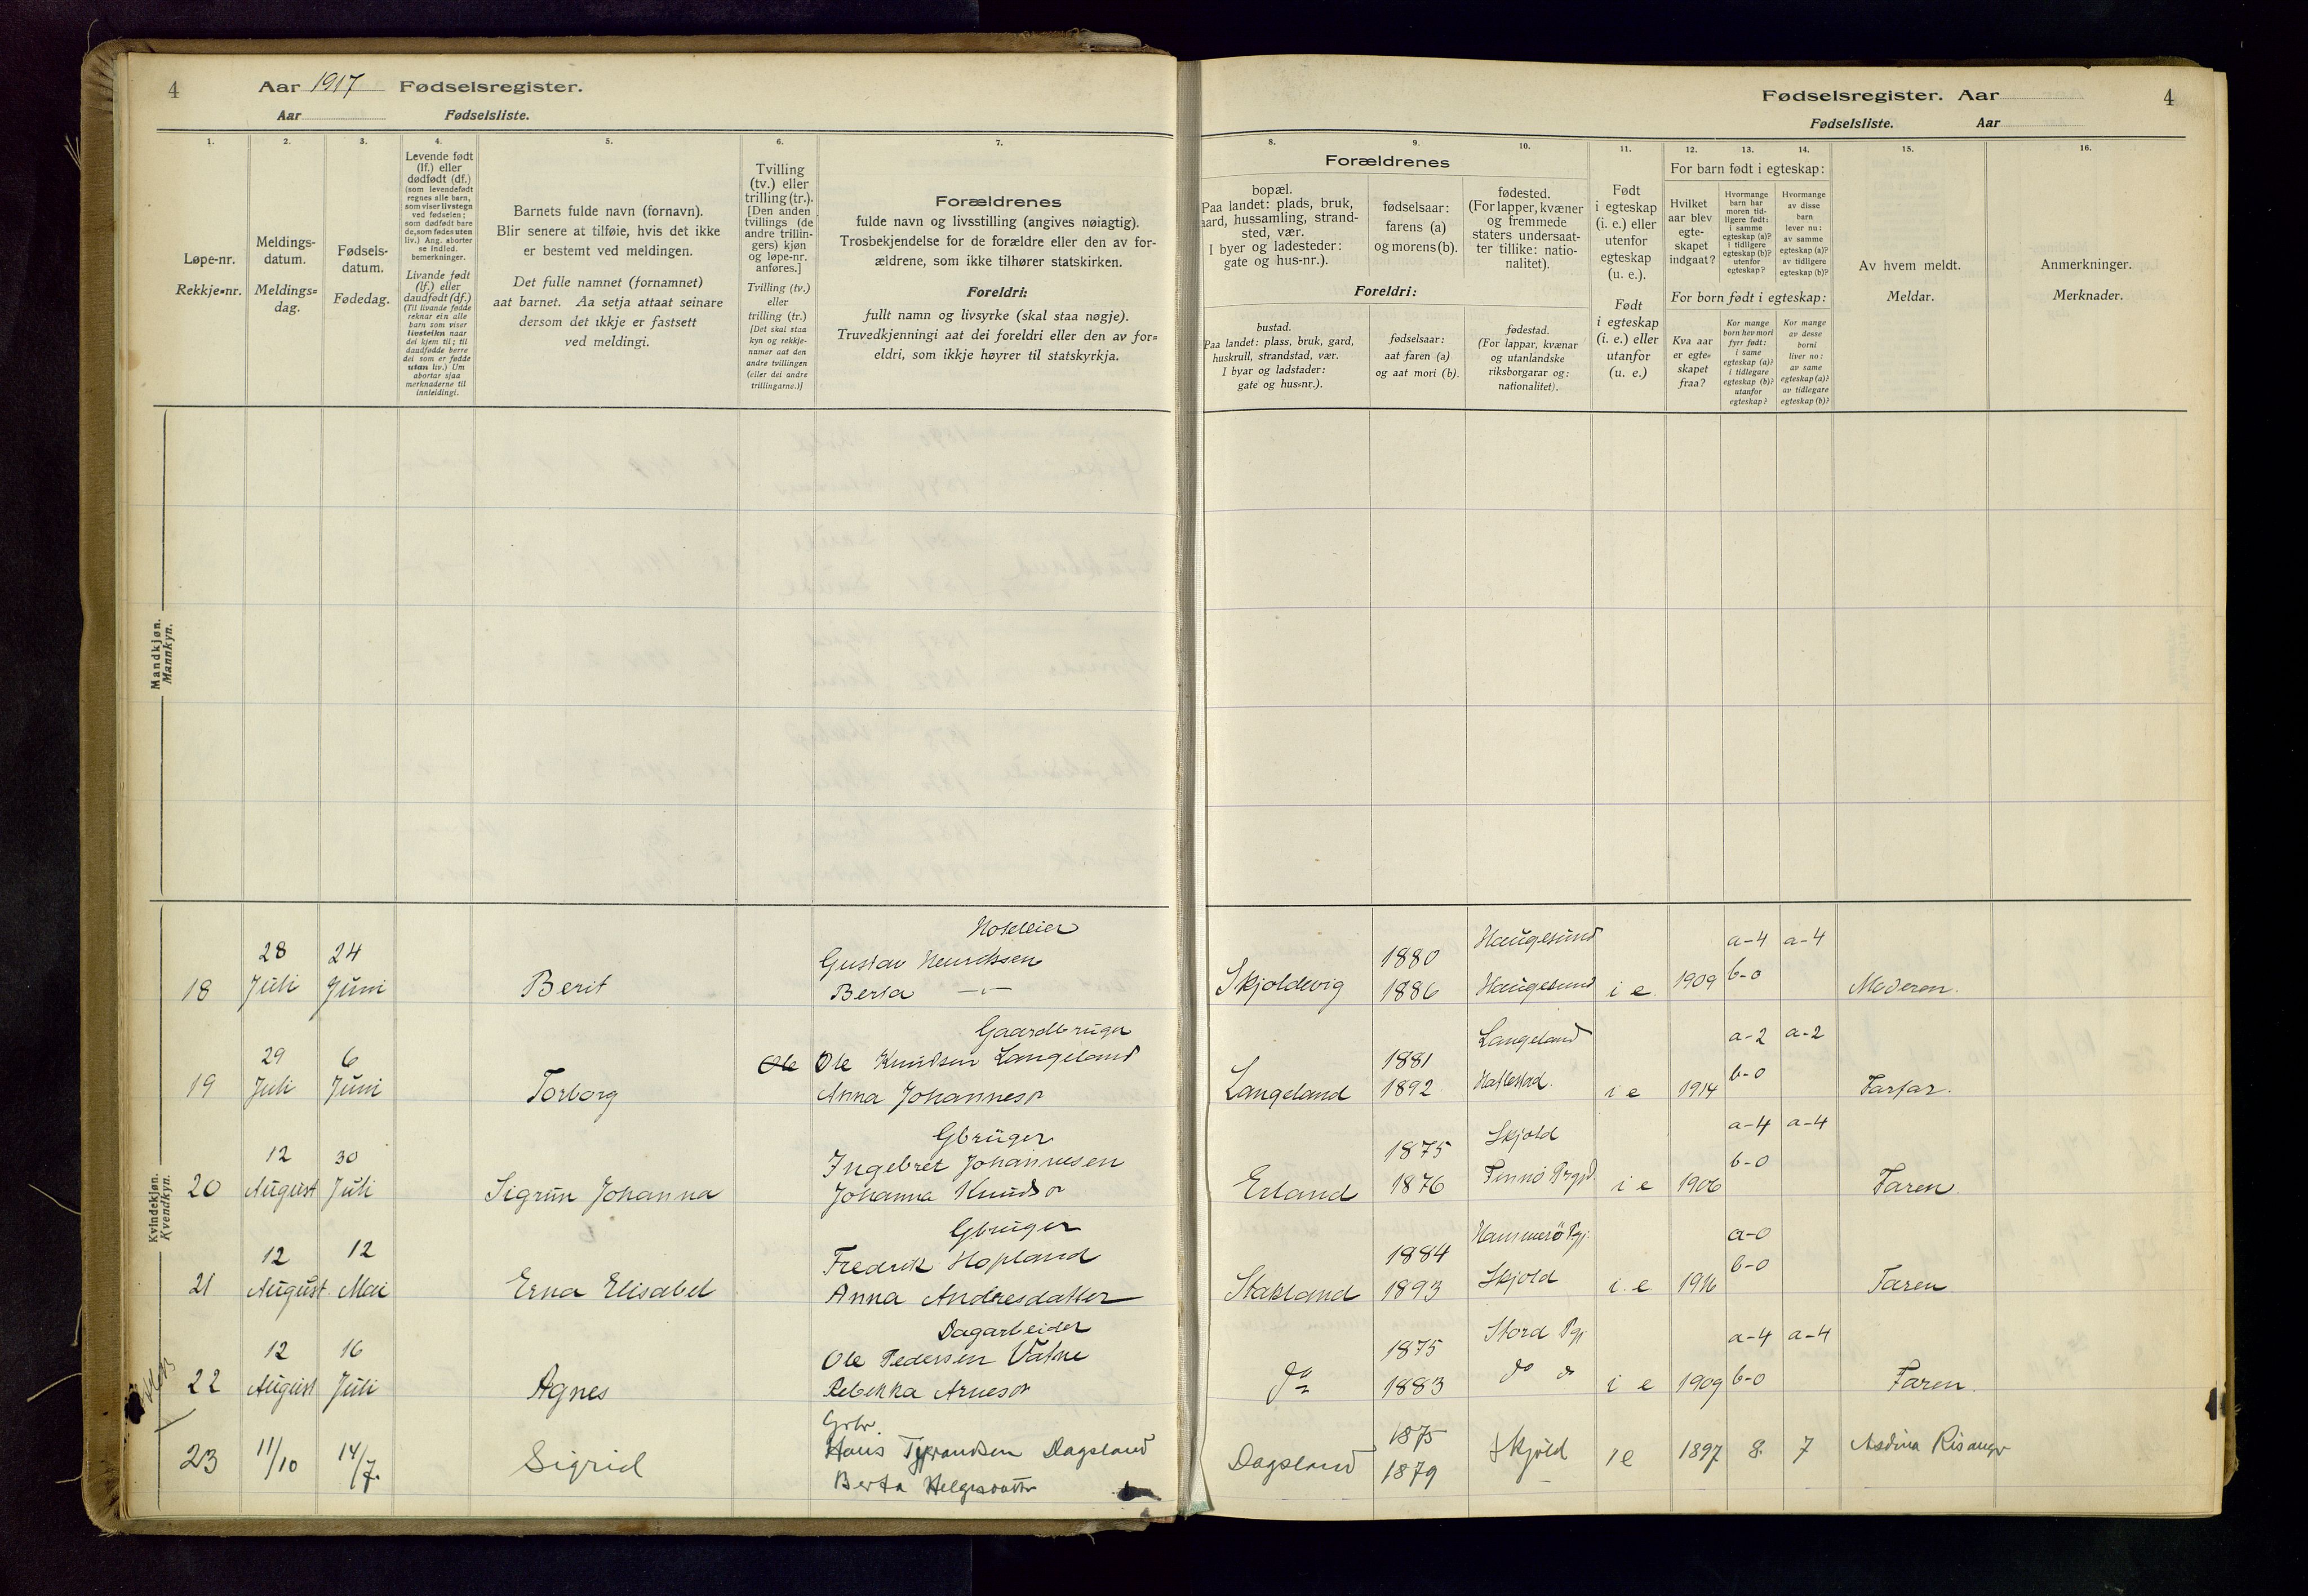 4
Aar 1917 Fødselsregister.
Aar Fødselsliste.
Fødselsregister. Aar
4
Fødselsliste. Aar
1.
Løpe-nr.
Rekkje=nr.
2.
Meldings-
datum.
Meldings=
dag.
3.
Fødsels-
datum.
Fødedag.
4.
Levende født
(lf.) eller
dødfødt (df.)
(som levendefødt
regnes alle barn,
som viser livstegn
ved fødselen;
som dødfødt bare
de, som fødes uten
liv.) Ang. aborter
se indled.
bemerkninger.
Livande født
(lf.) eller
daudfødt (df.)
(Til livande fødde
reknar ein alle
barn som viser
livsteikn naar
dei kjem til; til
daudfødde berre
dei som er fødde
utan liv.) Um
abortar sjaa
merknaderne til
innleidingi.
5.
Barnets fulde navn (fornavn).
Blir senere at tilføie, hvis det ikke
er bestemt ved meldingen.
Det fulle namnet (fornamnet)
aat barnet. Aa setja attaat seinare
dersom det ikkje er fastsett
ved meldingi.
6.
Tvilling
(tv.) eller
trilling (tr.).
[Den anden
tvillings (de
andre trillin-
gers) kjøn
og løpe-nr.
anføres.]
Tvilling (tv.)
eller
trilling (tr.)
[Det skal staa
kyn og rekkje-
numer aat den
andre tvillingen
(eller dei andre
trillingarne.)]
7.
Forældrenes
fulde navn og livsstilling (angives nøiagtig).
Trosbekjendelse for de forældre eller den av for-
ældrene, som ikke tilhører statskirken.
Foreldri:
fullt namn og livsyrke (skal staa nøgje).
Truvedkjenningi aat dei foreldri eller den av for=
eldri, som ikkje høyrer til statskyrkja.
8.
Forældrenes
bopæl.
Paa landet: plads, bruk,
aard, hussamling, strand-
sted, vær.
I byer og ladesteder:
gate og hus-nr.).
Foreldri:
bustad.
Paa landet: plass, bruk, gard,
huskrull, strandstad, vær.
I byar og ladstader:
gate og hus=nr.).
9.
fødselsaar:
farens (a)
og morens (b).
fødselsaar:
aat faren (a)
og aat mori (b).
10.
fødested.
(For lapper, kvæner
og fremmede
staters undersaat-
ter tillike: natio-
nalitet).
fødestad.
(For lappar, kvænar
og utanlandske
riksborgarar og:
nationalitet).
11.
Født
i egteskap
(i. e.) eller
utenfor
egteskap
(u. e.).
Født
i egteskap
(i. e.) eller
utanfor
(u. e.)
12.
For barn født i egteskap:
Hvilket
aar blev
egte-
skapet
indgaat?
For born født i egteskap:
Kva aar
er egte=
skapet
fraa?
13.
Hvormange
barn har
moren tid-
ligere født:
i samme
egteskap (a)?
i tidligere
egteskap (b)?
utenfor
egteskap?
Kor mange
born hev mori
fyrr født:
i same
egteskap (a)?
i tidlegare
egteskap (b)?
utanfor
egteskap?
14.
Hvormange
av disse
barn
lever nu:
av samme
egteskap (a)?
av tidligere
egteskap (b)?
Kor mange
av desse
borni
liver no:
av same
egteskap (a)?
av tidlegare
egteskap (b)?
15.
Av hvem meldt.
Meldar.
16.
Anmerkninger.
Merknader.
Mandkjøn.
Mannkyn.
Kvindekjøn.
Kvendkyn.
Hoteleier
18 28 Juli 24 Juni Berit Gustav Henriksen Skjoldevig 1880 Haugesund a-4 a-4
Berta —"— 1886 Haugesund i e. 1909 b-0 Moderen.
Gaardbruger
19 29 Juli 6 Juni Torborg Ole Ole Knudsen Langeland Langeland 1881 Langeland a-2 a-2
Anna Johannesd 1892 i e 1914 b-0 Farfar.
Gbruger
20 12 August 30 Juli Sigrun Johanna Ingebret Johannesen Erland 1875 Skjold a-4 a-4
Johanna Knudsd 1876 Finnø Prgjd. i e 1906 b-0 Faren
Gbruger
21 12 August 12 Mai Erna Elisabet Fredrik Hopland Stakland 1884 Hammerö Pgj. a-0
Anna Andresdatter 1893 Skjold i. e 1916 b-0 Faren
Dagarbeider
22 12 August 16 Juli Agnes Ole Pedersen Vatne do 1875 Stord Pgj a-4 a-4
Rebekka Arnesd 1883 do do i e 1909 b-0 Faren.
Grbr.
23 11/10 14/7. Sigrid Hans Dagsland Dagsland 1875 Skjold i e 1897 8. 7 Asdina Risanger
Berta Helgesdatter 1879 —